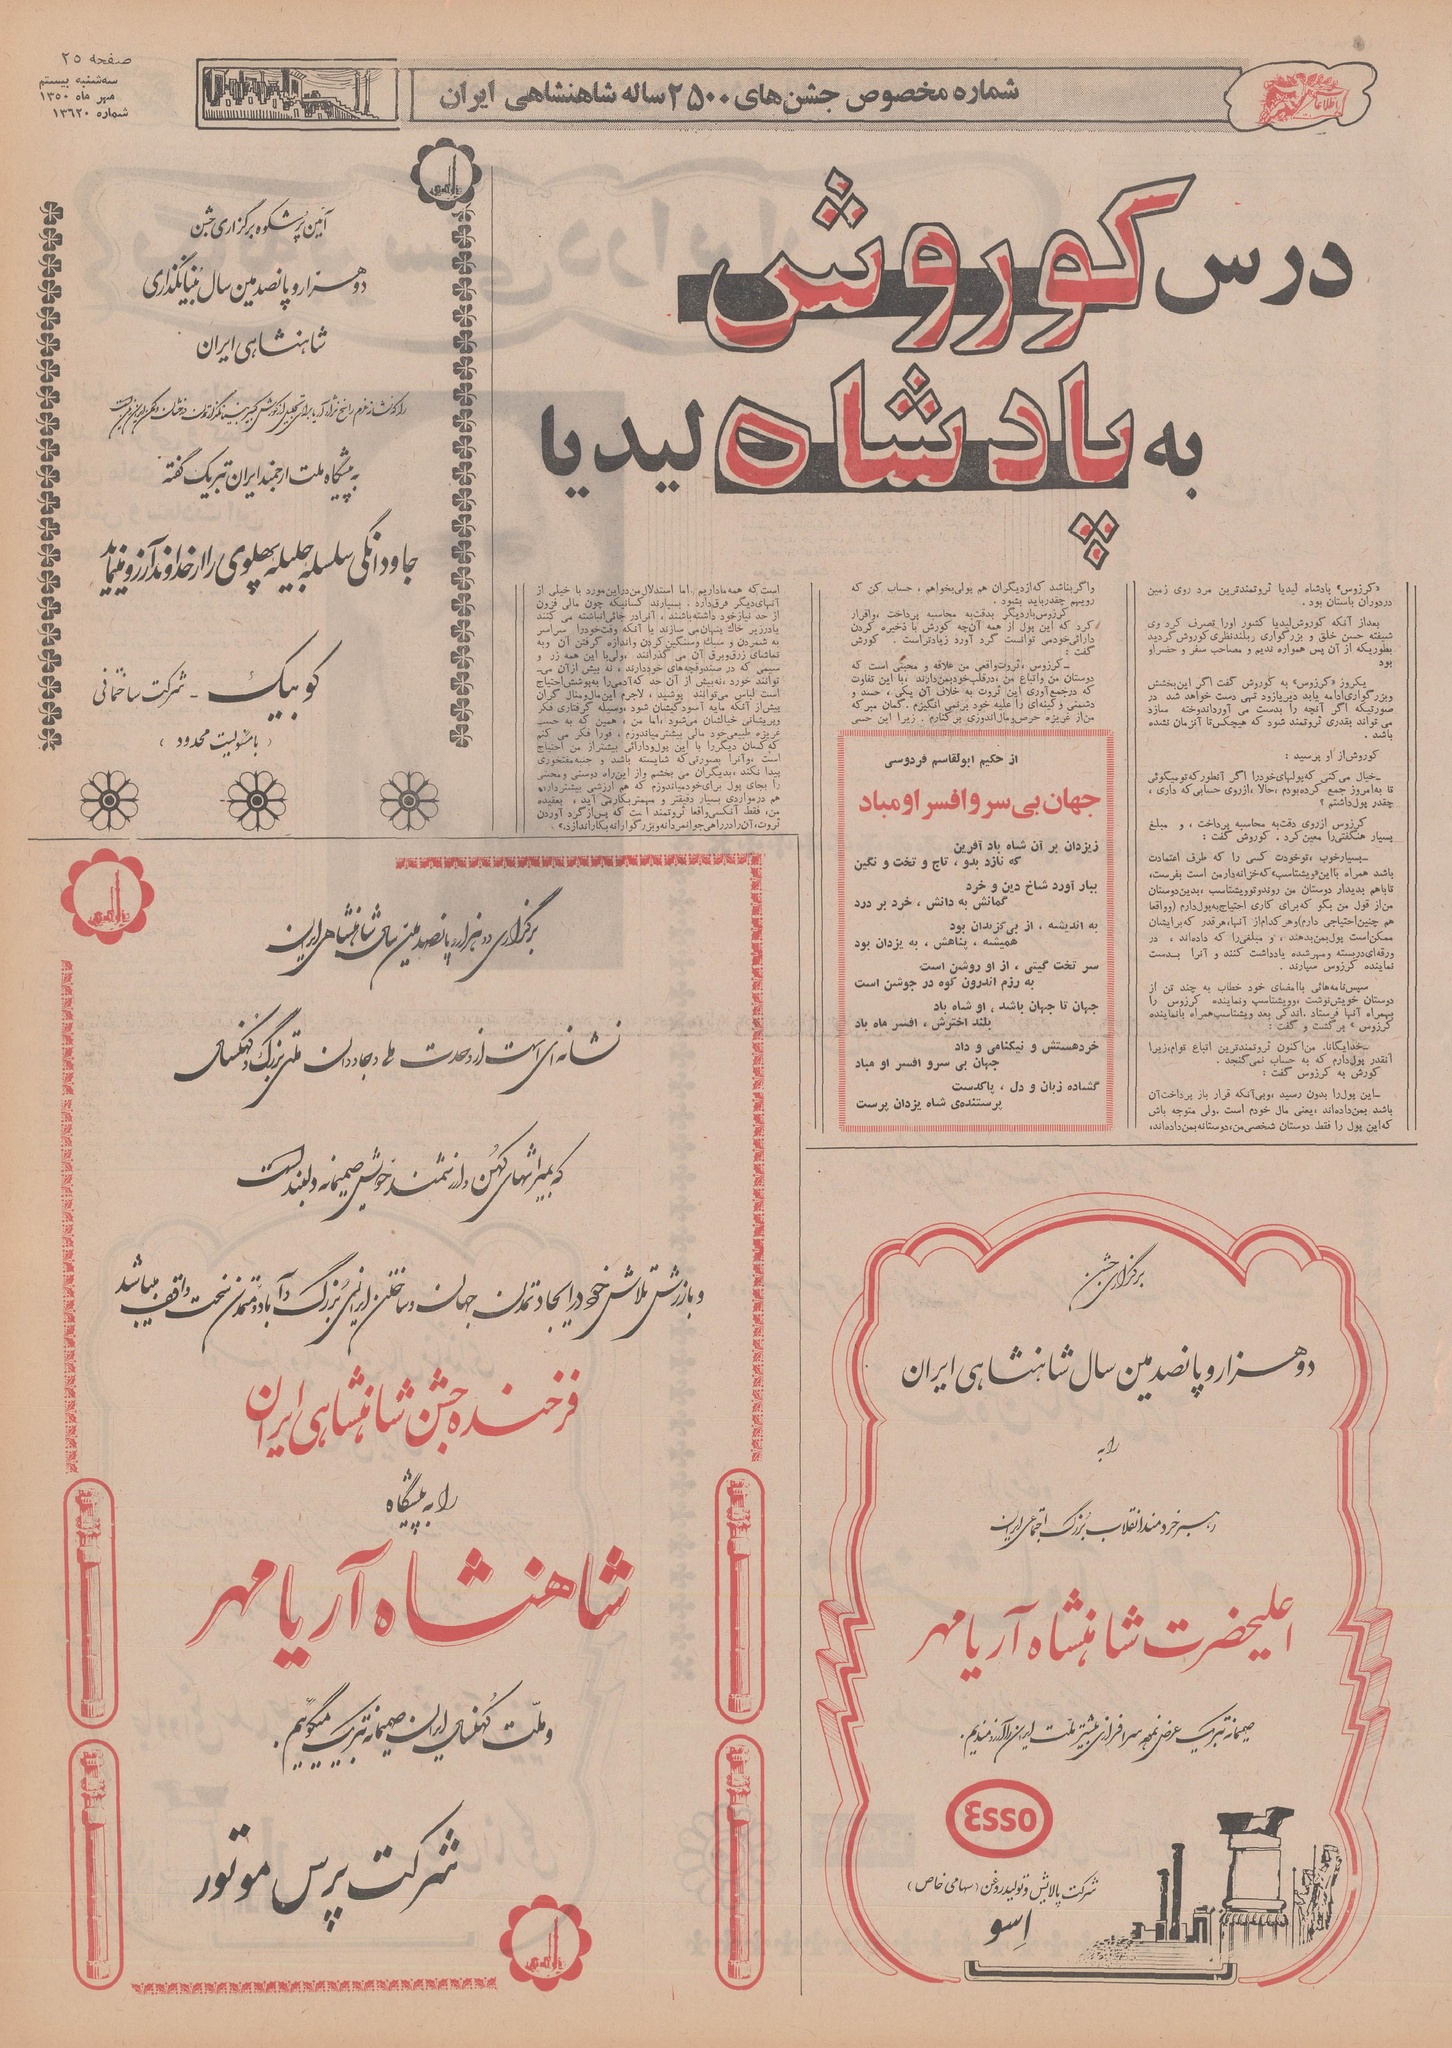 صفحه ۲۵
سه‌شنبه بیستم
مهر ماه ۱۳۵۰
شماره ۱۳۶۲۰
شماره مخصوص جشن‌های ۲۵۰۰ ساله شاهنشاهی ایران
اطلاعات
درس کوروش
به پادشاه لیدیا
«کرزوس» پادشاه لیدیا ثروتمندترین مرد روی زمین
دردوران باستان بود .
بعداز آنکه کوروش لیدیا کشور اورا تصرف کرد وی
شیفته حسن خلق و بزرگواری و بلندنظری کوروش گردید
بطوریکه از آن پس همواره ندیم و مصاحب سفر و حضر او
بود
یکروز «کرزوس» به کوروش گفت اگر این‌بخشش
وبزرگواری‌ادامه یابد دیریازود تهی دست خواهد شد در
صورتیکه اگر آنچه را بدست می آورداندوخته سازد
می تواند بقدری ثروتمند شود که هیچکس‌تا آنزمان نشده
باشد .
کوروش‌از او پرسید :
ـ خیال می کنی که پولهای خودرا اگر آنطور که تو میگوئی
تا به‌امروز جمع کرده‌بودم ، حالا ، ازروی حسابی که داری ،
چقدر پول داشتم ؟
کرزوس ازروی دقت به محاسبه پرداخت ، و مبلغ
بسیار هنگفتی‌را معین کرد . کوروش گفت :
ـ بسیارخوب ، توخودت کسی را که طرف اعتمادت
باشد همراه بااین «ویشتاسب» که خزانه‌دارمن است بفرست،
تاباهم بدیدار دوستان من روند و تو ویشتاسب ، بدین‌دوستان
من‌از قول من بگو که برای کاری احتیاج به‌پول‌دارم (وواقعا
هم چنین‌احتیاجی دارم) و هر کدام‌از آنها، هرقدر که برایشان
ممکن‌است پول بمن بدهند ، و مبلغی را که داده‌اند ، در
ورقه‌ای دربسته و مهرشده یادداشت کنند و آنرا بدست
نماینده کرزوس سپارند .
سپس‌نامه‌هائی باامضای خود خطاب به چند تن از
دوستان خویش‌نوشت ، وویشتاسب ونماینده کرزوس را
بهمراه آنها فرستاد . اندکی بعد ویشتاسب‌همراه بانماینده
کرزوس » برگشت و گفت :
ـ خدایگانا، من‌اکنون ثروتمندترین اتباع توام، زیرا
آنقدر پول‌دارم که به حساب نمی‌گنجد .
کورش به کرزوس گفت :
ـ این پول‌را بدون رسید ، وبی‌آنکه قرار باز پرداخت‌آن
باشد بمن‌داده‌اند ، یعنی مال خودم است . ولی متوجه باش
که‌این پول را فقط دوستان شخصی‌من، دوستانه بمن‌داده‌اند،
واگر بناشد که‌ازدیگران هم پولی‌بخواهم ، حساب کن که
رویهم چقدرباید بشود .
کرزوس‌باردیگر بدقت‌به محاسبه پرداخت ، واقرار
کرد که این پول از همه آن‌چه کورش با ذخیره کردن
دارائی‌خودمی توانست گرد آورد زیادتراست . کورش
گفت :
ـ کرزوس ، ثروت‌واقعی من علاقه و محبتی است که
دوستان من واتباع من ، درقلب خودبمن‌دارند ، با این تفاوت
که درجمع‌آوری این ثروت به خلاف آن یکی ، حسد و
دشمنی و کینه‌ای را علیه خود برنمی انگیزم . گمان مبر که
من از غریزه حرص و مال‌اندوزی بر کنارم . زیرا این حسی
از حکیم ابوالقاسم فردوسی
جهان بی سر و افسر او مباد
زیزدان بر آن شاه باد آفرین
که نازد بدو ، تاج و تخت و نگین
ببار آورد شاخ دین و خرد
گمانش به دانش ، خرد بر درد
به اندیشه ، از بی‌گزندان بود
همیشه ، پناهش ، به یزدان بود
سر تخت گیتی ، از او روشن است
به رزم اندرون کوه در جوشن است
جهان تا جهان باشد ، او شاه باد
بلند اخترش ، افسر ماه باد
خردهستش و نیکنامی و داد
جهان بی سرو افسر او مباد
گشاده زبان و دل ، پاکدست
پرستنده‌ی شاه یزدان پرست
است که همه ماداریم . اما استدلال من دراین‌مورد با خیلی از
آنهای‌دیگر فرق‌دارد . بسیارند کسانیکه چون مالی فزون
از حد نیازخود داشته‌باشند ، آنرادر جائی‌انباشته می کنند
یادرزیر خاک پنهان می سازند یا آنکه وقت‌خودرا سراسر
به شمردن و سبک وسنگین کردن واندازه گرفتن آن وبه
تماشای زرق‌وبرق آن می گذرانند . ولی‌با این همه زر و
سیمی که در صندوقچه های خوددارند ، نه بیش ازآن می‌ـ
توانند خورد ، نه‌بیش از آن حد که‌آدمی‌را به‌پوشش‌احتیاج
است لباس می‌توانند پوشید ، لاجرم این‌مال‌ومنال گران
بیش از آنکه مایه آسودگیشان شود ، وسیله گرفتاری فکر
وپریشانی خیالشان می‌شود . اما من ، همین که به حسب
غریزه طبیعی‌خود مالی بیشترمیاندوزم ، فورا فکر می کنم
که‌کسان دیگررا با این پول‌ودارائی بیشتراز من احتیاج
است ، وآنرا بصورتی‌که شایسته باشد و جنبه‌مفتخوری
پیدا نکند ، بدیگران می بخشم واز این‌راه دوستی و محبتی
را بجای پول برای‌خودمیاندوزم که هم ارزشی بیشتردارد،
هم درمواردی بسیار دقیقتر و مهمتربکارمی آید ، بعقیده
من، فقط آنکسی‌واقعا ثروتمند است که پس‌ازگرد آوردن
ثروت، آن‌رادرراهی‌جوانمردانه‌وبزرگوارانه بکاراندازد.»
آئین پرشکوه برگزاری جشن
دو هزار و پانصدمین سال بنیانگذاری
شاهنشاهی ایران
به پیشگاه ملت ارجمند ایران تبریک گفته
جاودانگی سلسله جلیله پهلوی را از خداوند آرزو مینماید
کوبیک ـ شرکت ساختمانی
( با مسئولیت محدود )
برگزاری دو هزار و پانصدمین سال شاهنشاهی ایران
نشانه‌ای است از وحدت ملی و جاودان ملتی بزرگ و کهنسال
که بمیراثهای کهن و ارزشمند خویش صمیمانه دلبند است
و بارزش تلاش خود در ایجاد تمدن جهان و ساختن ایرانی بزرگ و آباد و متمدن سخت واقف میباشد
فرخنده جشن شاهنشاهی ایران
را به پیشگاه
شاهنشاه آریامهر
و ملت کهنسال ایران صمیمانه تبریک میگوئیم .
شرکت پرس موتور
برگزاری جشن
دو هزار و پانصدمین سال شاهنشاهی ایران
را به
رهبر خردمند انقلاب بزرگ اجتماعی ایران
اعلیحضرت شاهنشاه آریامهر
صمیمانه تبریک عرض نموده سرافرازی بیشتر ملت ایران را آرزومندیم .
Esso
شرکت پالایش و تولید روغن (سهامی خاص)
اسو